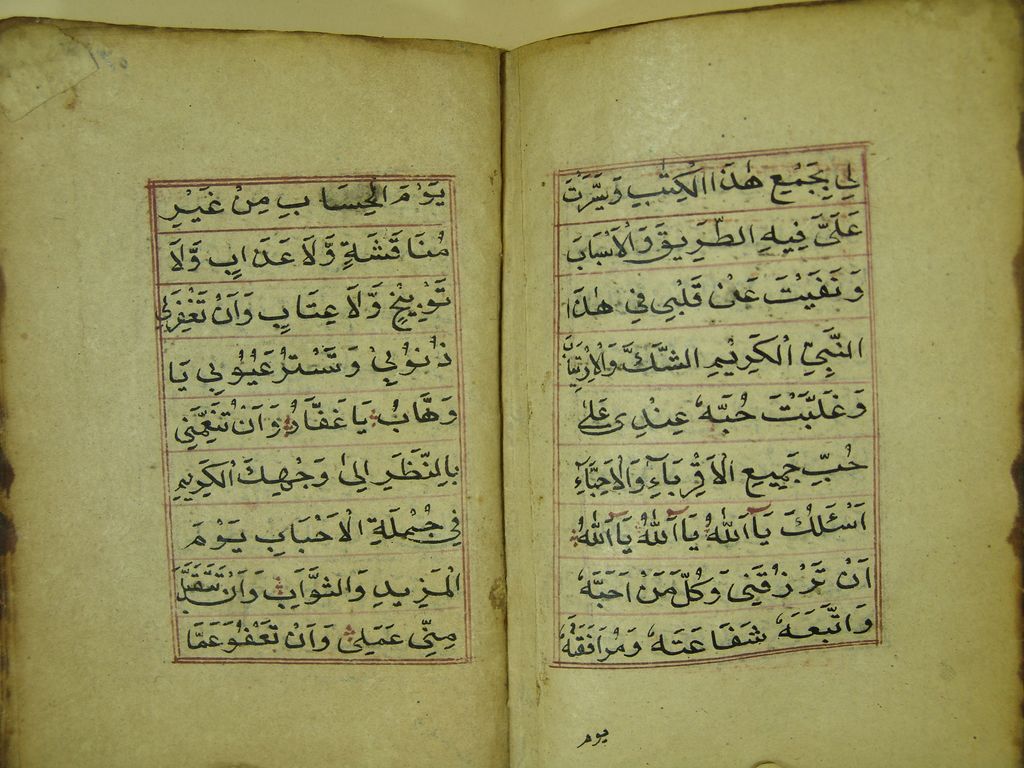 لِي بِجَمْعِ هٰذَا الْكِتٰبِ وَيَسَّرْتَ
عَلَىَّ فِيهِ الطَّرِيقَ وَالْاَسْبَابَ
وَنَفَيْتَ عَنْ قَلْبِي فِي هٰذَا
النَّبِيِّ الْكَرِيْمِ الشَّكَّ وَالْاِرْتِيَابَ
وَغَلَّبْتَ حُبَّهٗ عِنْدِي عَلٰى
حُبِّ جَمِيعِ الْاَقْرِبَآءِ وَالْاَحِبَّآءِ
اَسْئَلُكَ يَآاَللّٰهُ يَآاَللّٰهُ يَآاَللّٰهُ
اَنْ تَرْزُقَنِي وَكُلَّ مَنْ اَحَبَّهٗ
وَاتَّبَعَهٗ شَفَاعَتَهٗ وَمُرَافَقَتَهٗ
يوم
يَوْمَ الْحِسَابِ مِنْ غَيْرِ
مُنَاقَشَةٍ وَّلَا عَذَابٍ وَّلَا
تَوْبِيْخٍ وَّلَا عِتَابٍ وَاَنْ تَغْفِرَلِي
ذُنُوبِيْ وَتَسْتُرَ عُيُوبِي يَا
وَهَّابُ يَا غَفَّارُ وَاَنْ تُنَعِّمَنِي
بِالنَّظَرِ اِلٰى وَجْهِكَ الْكَرِيمِ
فِي جُمْلَةِ الْاَحْبَابِ يَوْمَ
الْمَزِيدِ وَالثَّوَابِ وَاَنْ تَتَقَبَّلَ
مِنِّي عَمَلِي وَاَنْ تَعْفُوَ عَمَّا